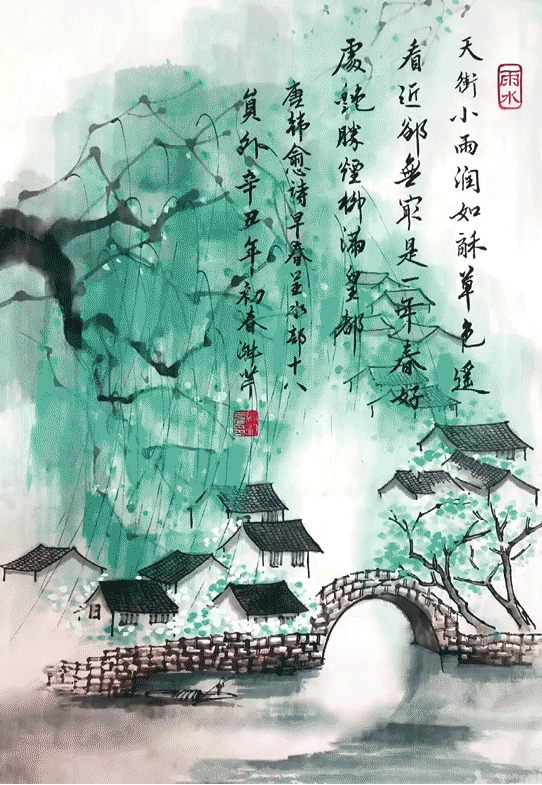 雨水
天街小雨润如酥草色遥
看近郤無最是一年春好
處絶勝煙柳滿皇都
唐韩愈诗早春呈水部十八
員外辛丑年初春